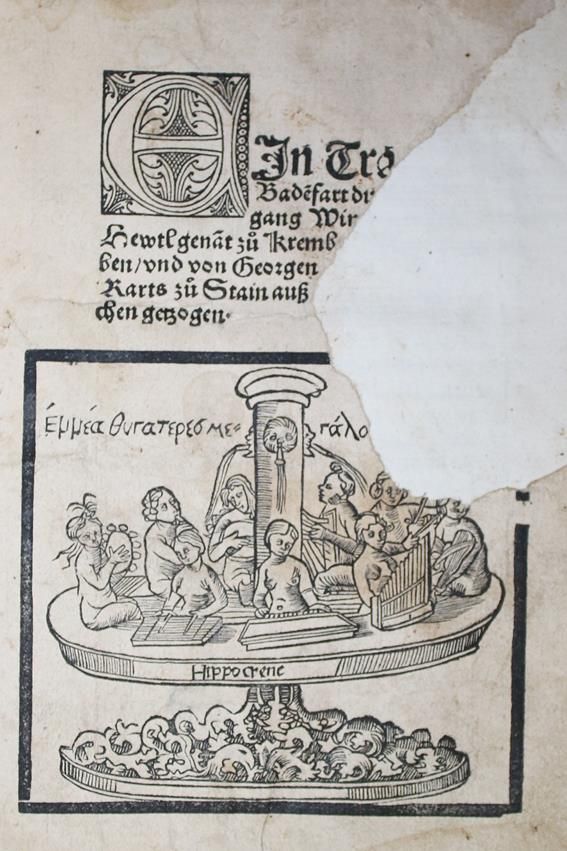 EIn Tro
Badēfart
gang Wir
Hewtl genāt zů Kremb
ben/vnd von Georgen
Rarts zů Stain auß
chen getzogen.
ἐμμέα θυγατερες με- γάλο
Hippocrene